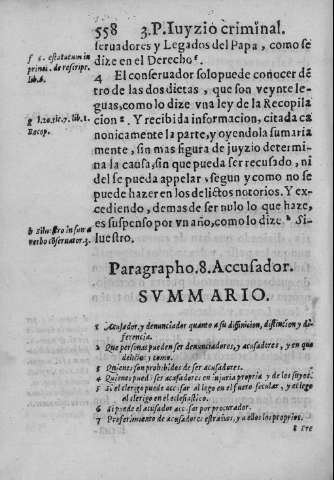 558 3.P. Iuyzio criminal.
seruadores y Legados del Papa, como se
dize en el Derecho f.
f c. estatutum in
princi. de rescript.
lib. 6.
4 El conseruador solo puede conocer dẽ
tro de las dos dietas, que son veynte le-
guas, como lo dize vna ley de la Recopila
cion g. Y recibida informacion, citada ca
g l. 20. tit. 7. lib. 1.
Recop.
nonicamente la parte, y oyendola sumaria
mente, sin mas figura de juyzio determi-
na la causa, sin que pueda ser recusado, ni
del se pueda appelar, segun y como no se
puede hazer en los delictos notorios. Y ex-
cediendo, demas de ser nulo lo que haze,
es suspenso por vn año, como lo dize h Sil-
h Siluestro in suma
verbo cõseruator. 3.
luestro.
Paragrapho. 8. Accusador.
SVMMARIO.
1 Acusador, y denunciador quanto a su diffinicion, distincion y di-
ferencia.
2 Que personas pueden ser denunciadores, y acusadores, y en que
delicto: y como.
3 Quienes son prohibidos de ser acusadores.
4 Quienes pueden ser acusadores en injuria propria y de los suyos.
5 Si el clerigo puede acusar al lego en el fuero secular, y el lego
al clerigo en el eclesiastico.
6 Si puede el acusador acusar por procurador.
7 Preferimiento de acusadores estraños, y a ellos los proprios.
8 Ere